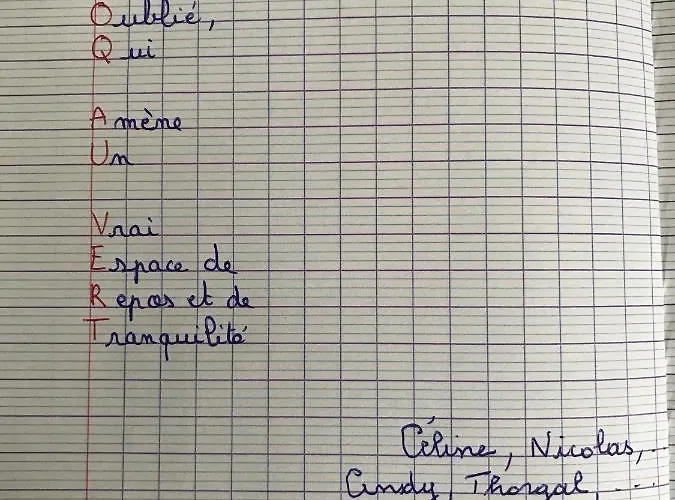 Oublié,
Qui
Amène
Un
Vrai
Espace de
Repos et de
Tranquilité
Céline, Nicolas,
Cindy, Thorgal, ...